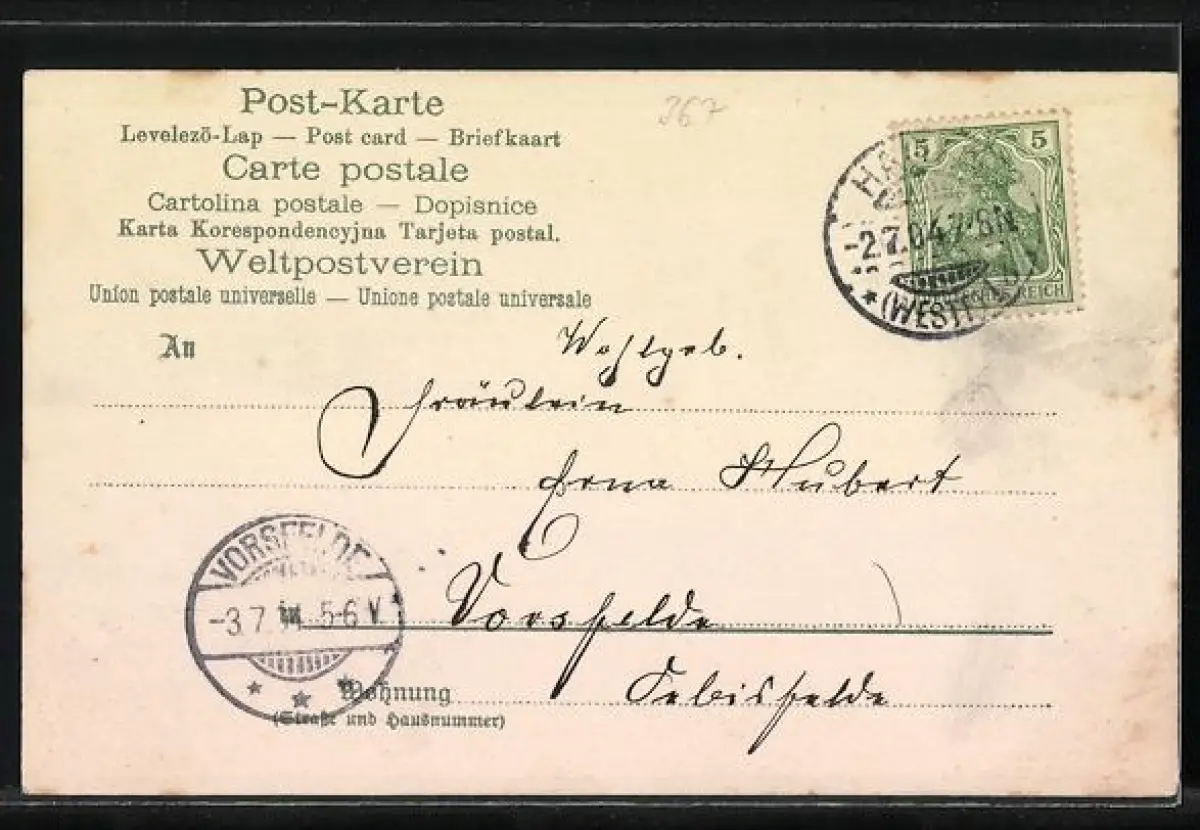 Post-Karte
367
Levelező-Lap — Post card — Briefkaart
Carte postale
Cartolina postale — Dopisnice
Karta Korespondencyjna Tarjeta postal.
Weltpostverein
Union postale universelle — Unione postale universale
5 5
REICH
HA
-2.7.04.7-8N.
(WESTF.)
An
Wohlgeb.
Fräulein
Erna Hubert
VORSFELDE
-3.7. 5-6 V.
Vorsfelde
Oebisfelde
Wohnung
(Straße und Hausnummer)